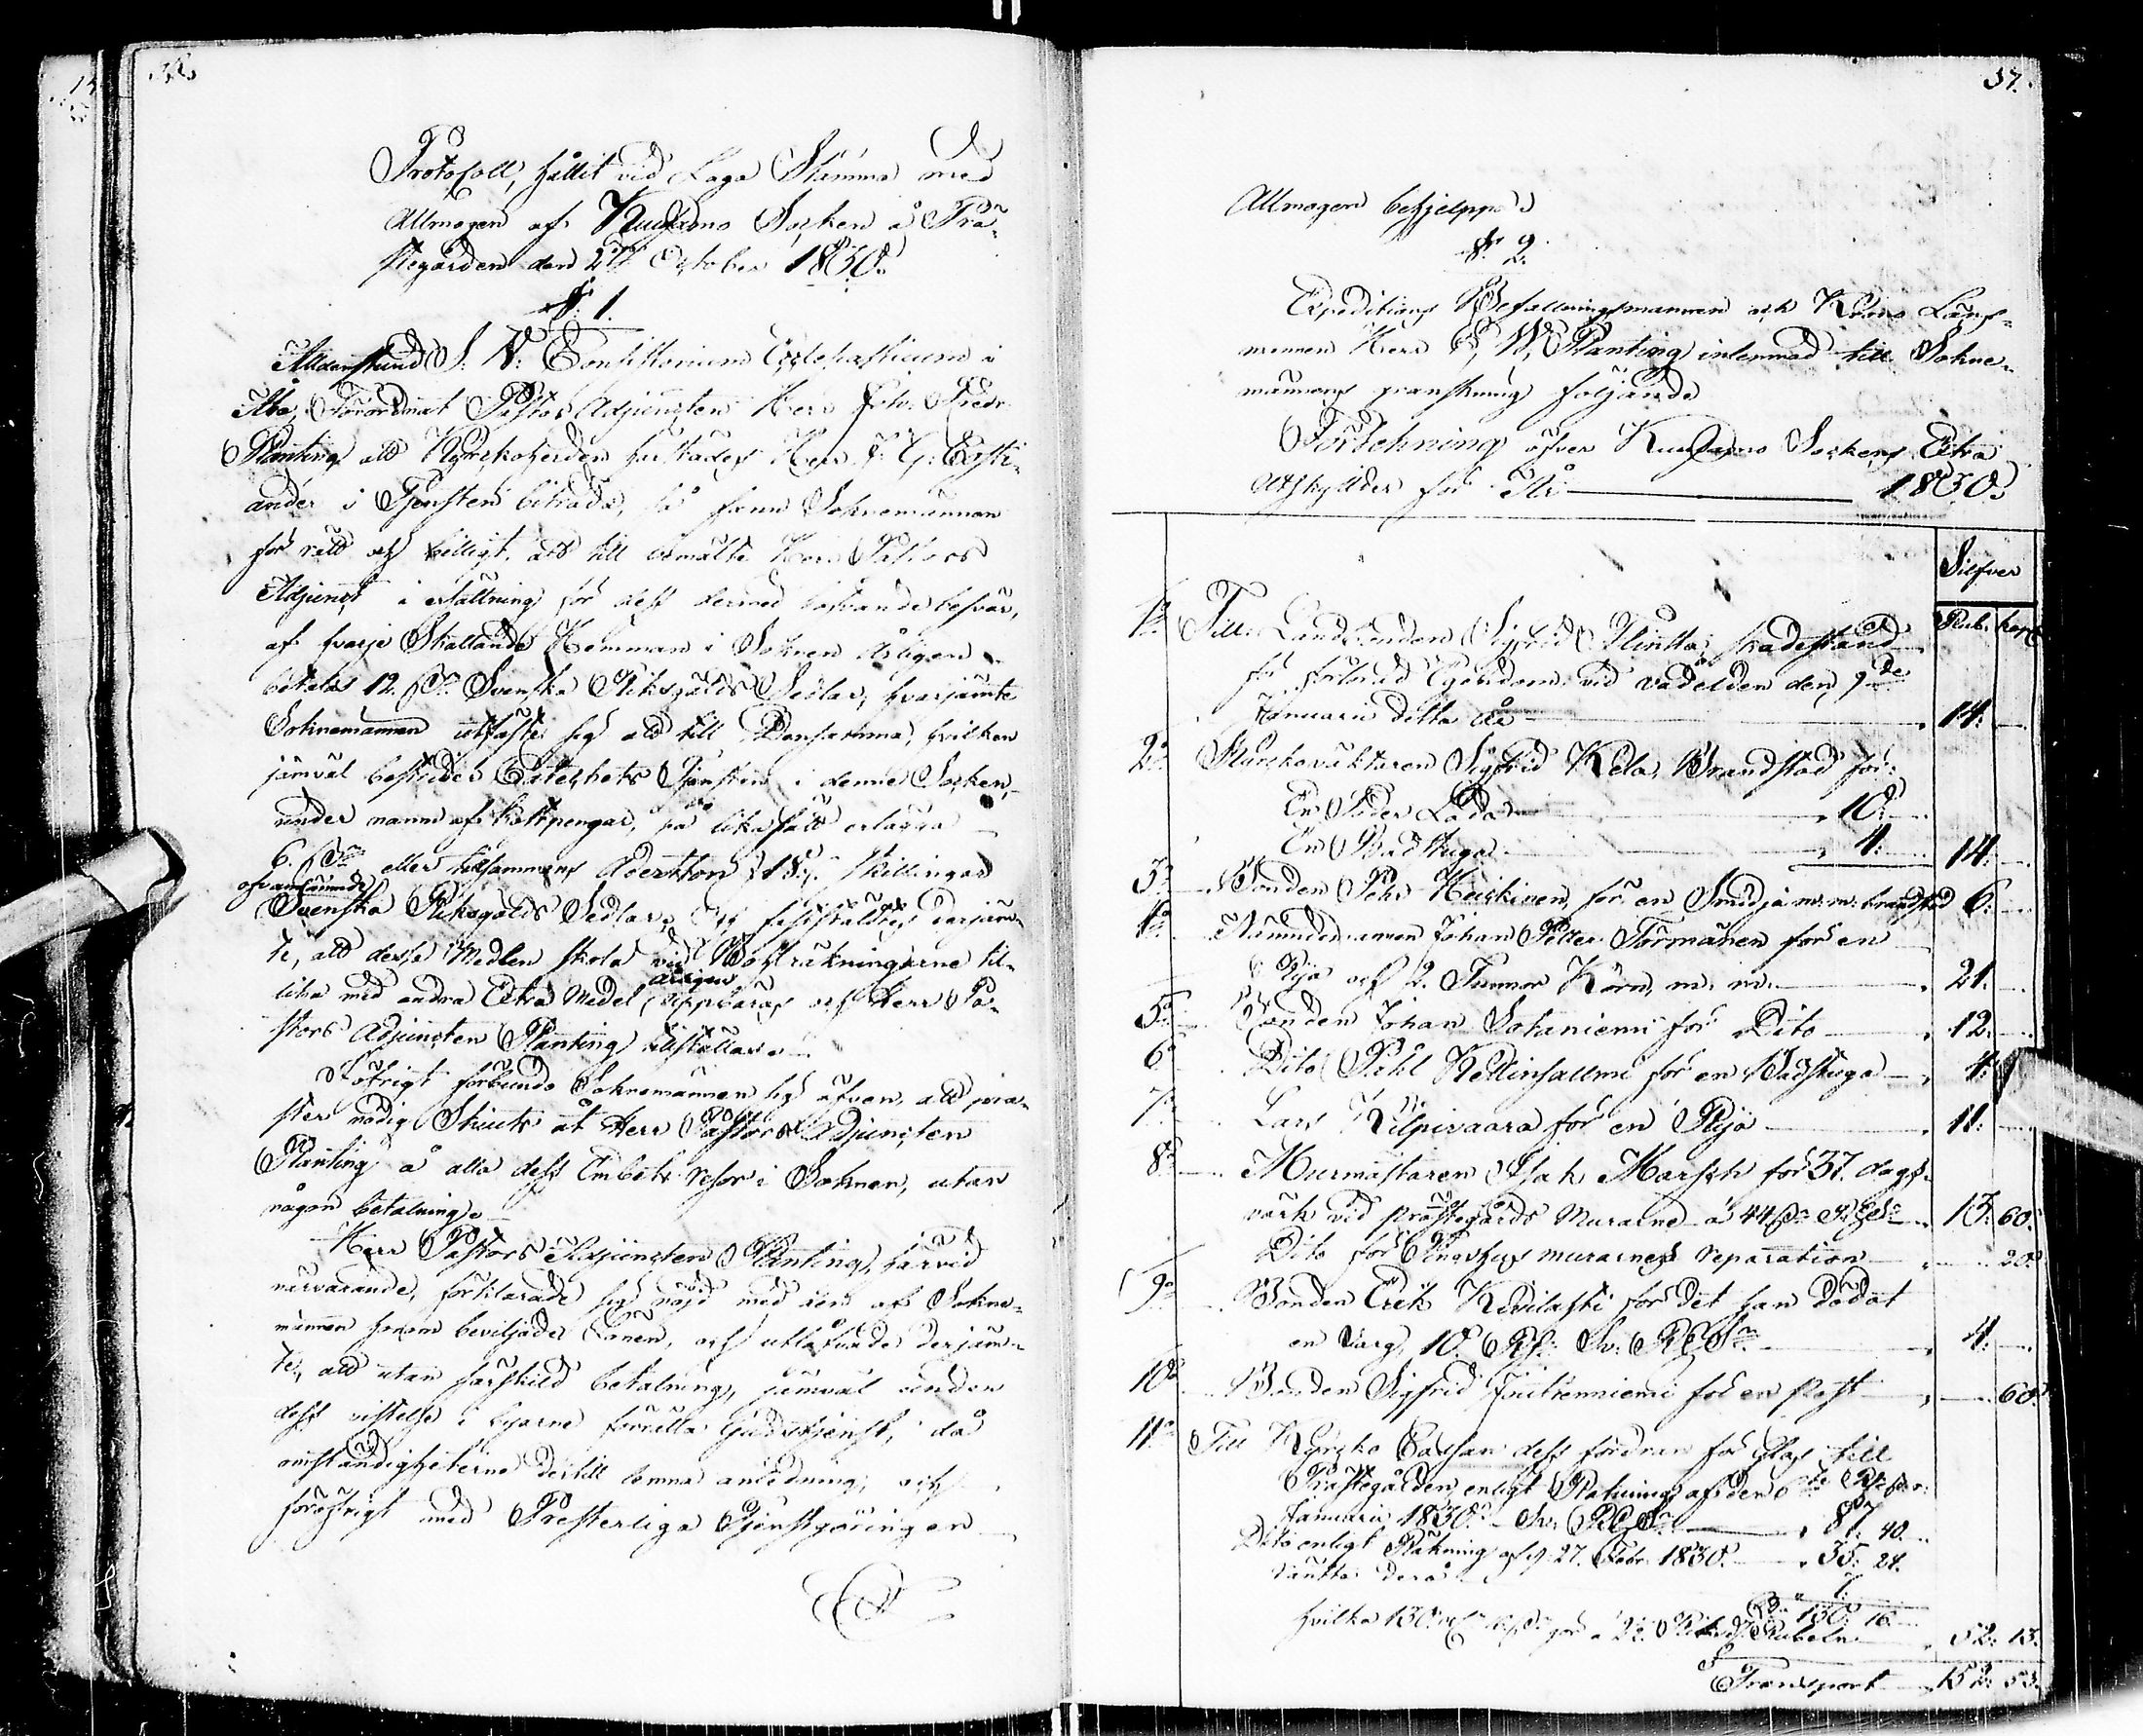 36.
Protokoll, hållit vid Laga Stämma med
Allmogen af Kuusamo Socken å Prä-
stegården den 27 October 1830.
§ 1.
Alldenstund S. V. Consistorium Ecclesiasticum i
Åbo, Förordnat Pastors Adjuncten Herr Joh. Fredr.
Planting att Kyrkoherden Herr
i Tjensten biträda, så funno Sokнemännen
för rätt och billigt, att till bemälte Herr Pastors
Adjunct i ersättning för dess dermed hafvande besvär,
af hvarje Skattlande Hemman i Soknen årligen
betalas 12. sk. Svenska Riksgälds Sedlar, hvarjämte
Soknemännen utfäste sig att till Densamma, hvilken
jämväl bestrider Catechets Tjensten i denne Socken,
under namn af Kostpengar, på lika sätt erlägga
6. sk. eller tillsammans Aderton 18. skillingar
ofvannämnde
Svenska Riksgälds Sedlar; Och fastställdes derjäm-
te, att desse Medlen skola vid Uträkningarne til-
årligen
lika med andra Extra Medel uppbäras och Herr Pa-
stors Adjuncten Planting tillställas.
Öfrigt förbundo Soknemännen sig äfven, att præ-
stera nödig Skjuts åt Herr Pastors Adjuncten
Planting å alla dess Embets resor i Soknen, utan
någon betalning.
Herr Pastors Adjuncten Planting, härvid
närvarande, förklarade sig nöjd med den af Sokne-
männen honom beviljade Lönen, och utlåfvade derjäm-
te, att utan särskild betalning, jämväl under
dess vistelse i byarne förrätta Gudstjenst, då
omständigheterne dertill lemna anledning, och
föröfrigt med Presterliga Tjenstgöringen
37.
Allmogen behjelpa.
§ 2.
Expeditions Befallningsmannen och Krono Läns-
mannen Herr Planting inlemnad till Sokne-
männens granskning följande
Förtekning öfver Kuusamo Sockens Extra
Utskylder för År 1830.
Silfver
Rub. kop.
1o Till Landbonden Sigfrid skadestånd
för förlorad Egendom vid vådelden den 9de
Januarii detta år 14. —
2o Kyrckoväktaren Sigfrid Kela, Brandstod för:
En Foder Lada 10. —
En Badstuga 4. — 14. —
3o Bonden Pehr Heickinen, för en Smidja m. m. brandstod 6. —
4o Nämndemannen Johan Petter Törmänen för en
Rja och 2. Tunnor Korn, m. m. 21. —
5o Bonden Johan Sotaniemi för Dito 12. —
6o Dito Påhl för en Badstuga 4. —
7o Lars Kilpivaara för en Rja 11. —
8o Murmästaren Isak Marsch för 37. dags-
värk vid prästegårds Murarne à 44 sk. R. G. S. 13. 60.
Dito för murarnes reparation 20.
9o Bonden Erik för det han dödat
en Varg, 10. Rd. Sv. R. G. S. 4. —
10o Bonden Sigfrid för en 60.
11o Till Kyrcko Cassan dess fordran för Glas till
Prästegården, enligt Räkning af den
Januarii 1830. Sv. R. G. S. 87. 40.
Dito enligt Räkning af d. 27. Febr. 1830. 35. 24.
7.
130. 16.
hvilka 130 Rubeln 52. 13.
Transport 152. 53.